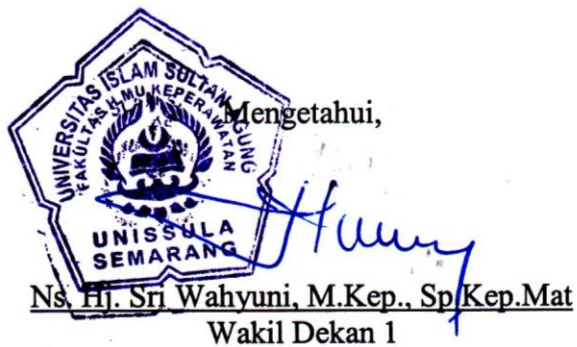 UNIVERSITAS ISLAM SULTAN AGUNG
FAKULTAS ILMU KEPERAWATAN
Mengetahui,
UNISSULA
SEMARANG
Ns. Hj. Sri Wahyuni, M.Kep., Sp.Kep.Mat
Wakil Dekan 1